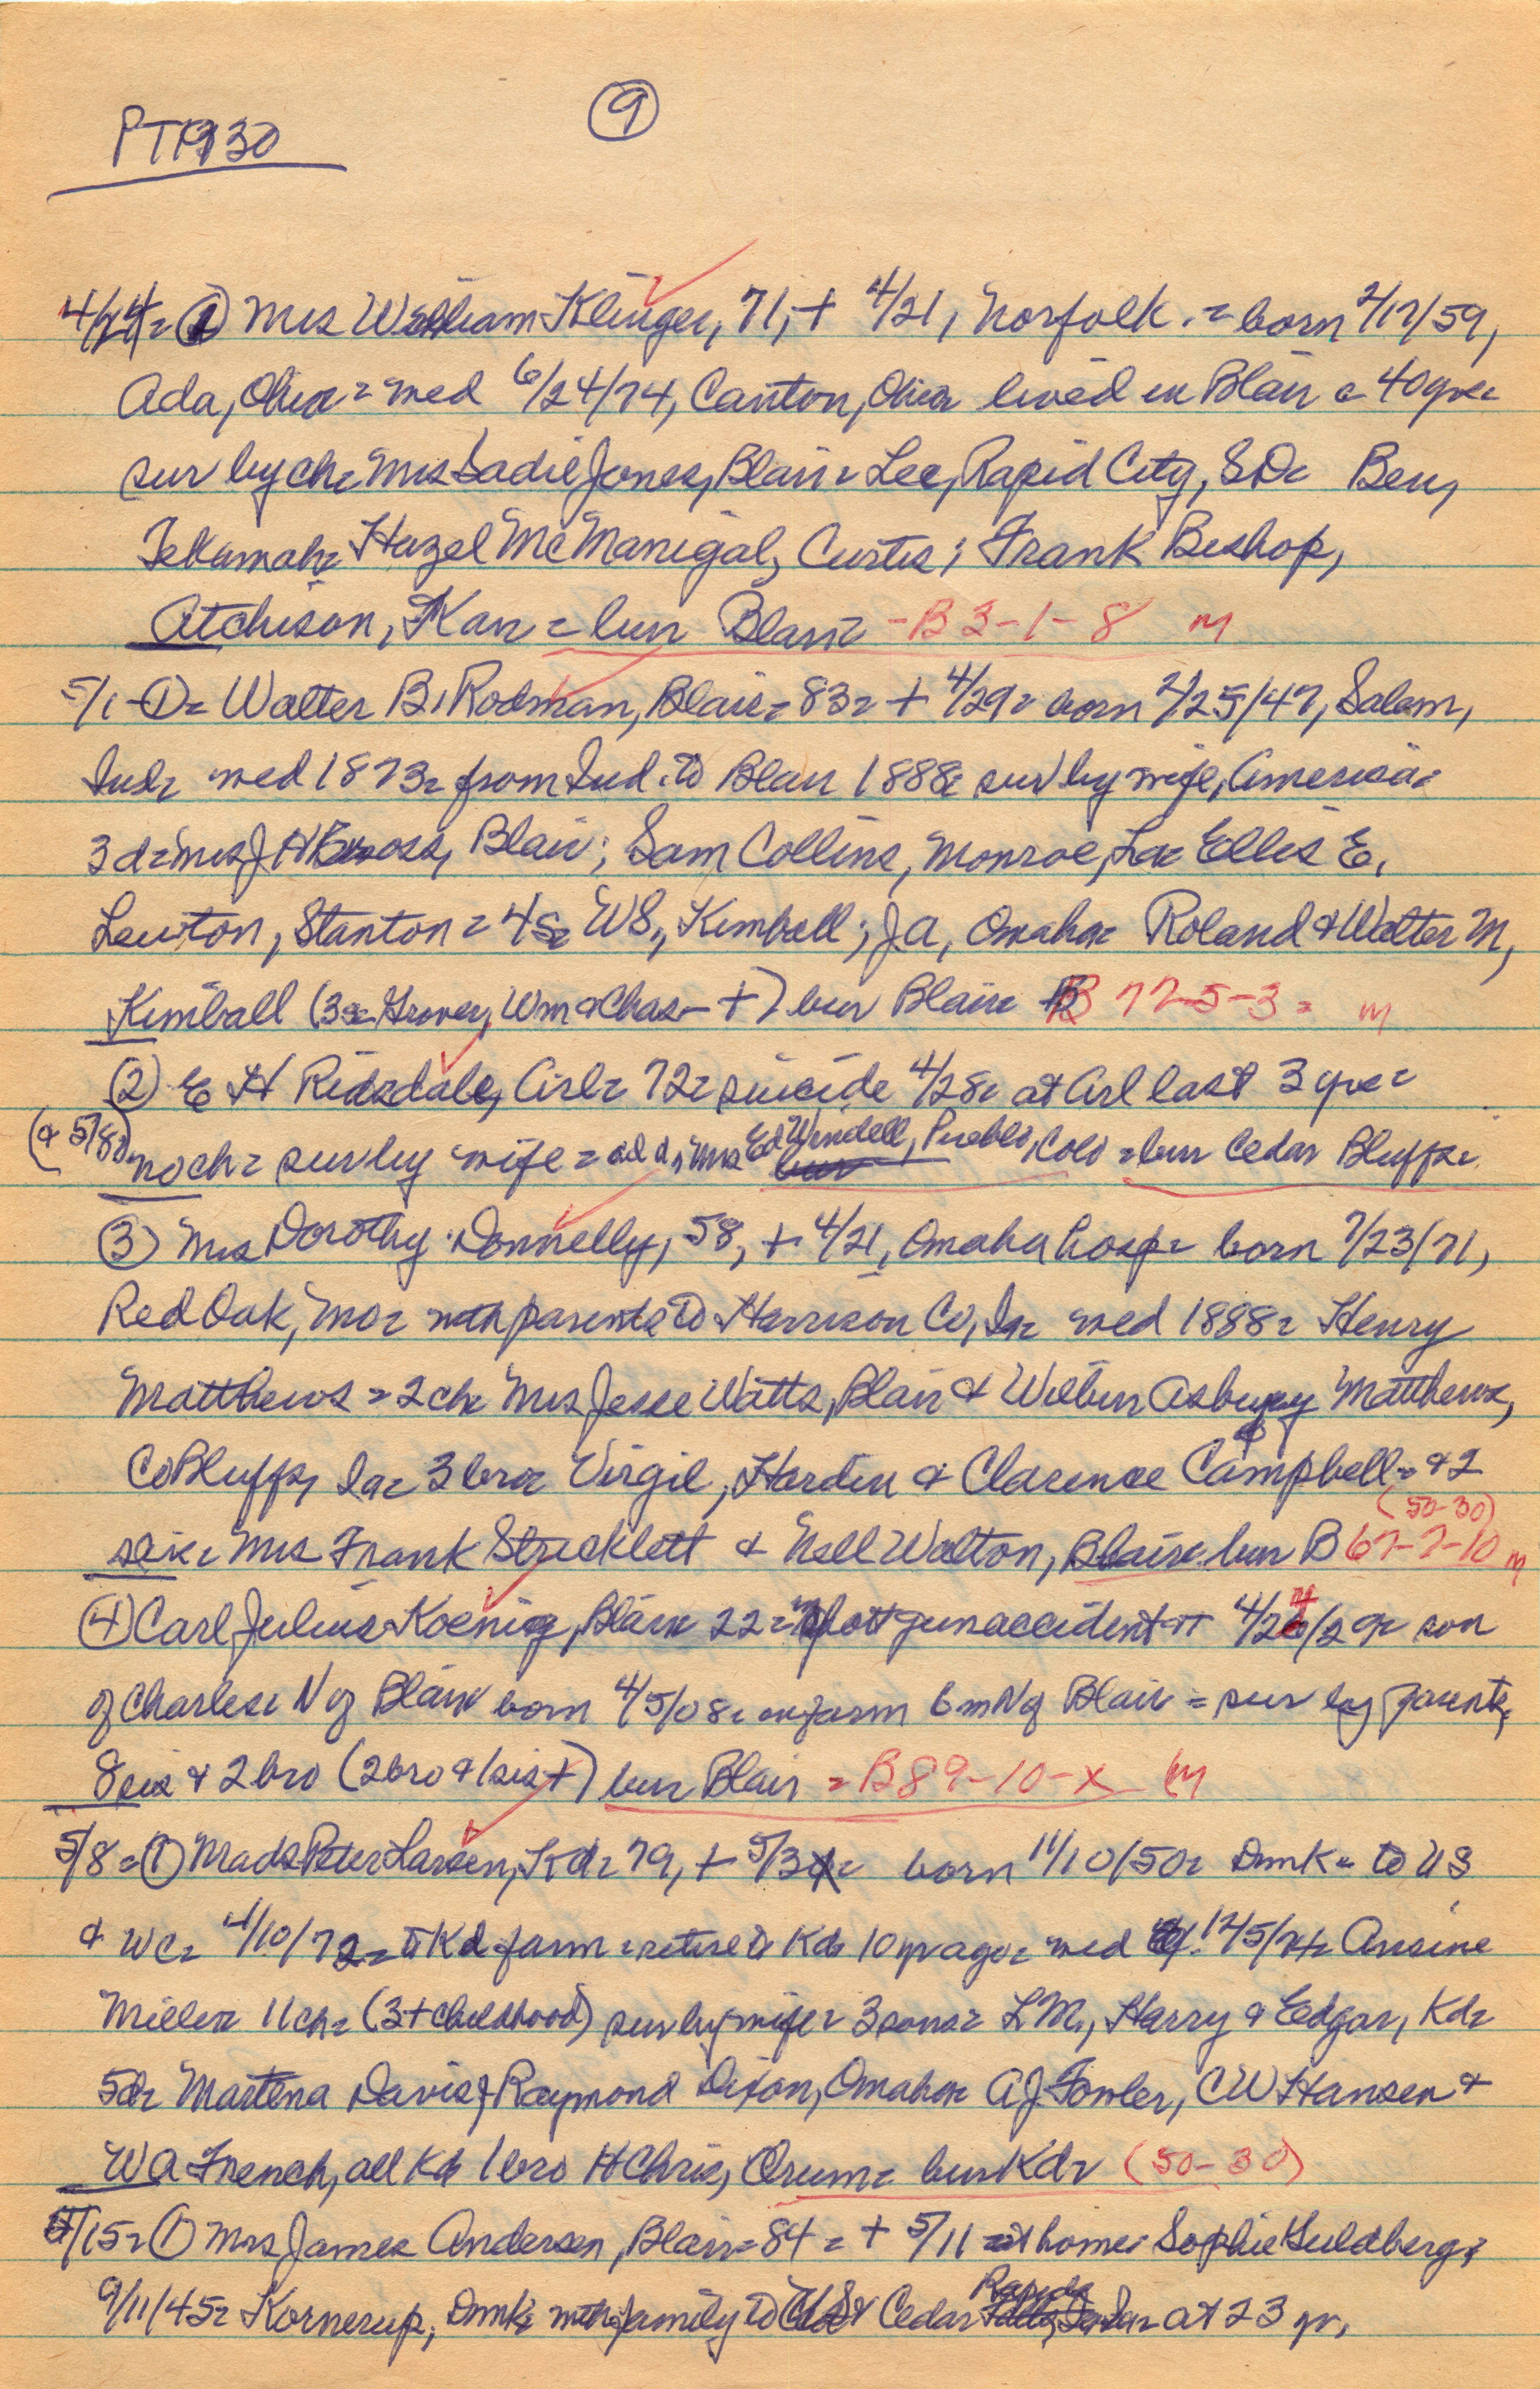 9
PT1930
4/24= ① Mrs William Klinger, 71, + 4/21, Norfolk. = born 2/17/59,
Ada, Ohio = med 6/24/74, Canton, Ohio lived in Blair c 40 yrs=
sur by ch= Mrs Sadie Jones, Blair= Lee, Rapid City, SD= Ben,
Tekamah= Hazel McManigal, Curtis; Frank Bishop,
Atchison, Kan = bur Blair= -B 3-1-8 m
5/1-①= Walter B. Rodman, Blair= 83= + 4/29= born 2/25/47, Salem,
Ind= med 1873= from Ind. to Blair 1888= sur by wife, America=
3 d= Mrs J H Blair; Sam Collins, Monroe, Ellis E.
Lewton, Stanton = 4 s= WS., Kimball; JA, Omaha= Roland & Walter M,
Kimball (3 s= Grover, Wm & Chas - +) bur Blair B 77-5-3 = m
② E H Ridzdale, Arl= 72= suicide 4/28= at Arl last 3 yrs=
(& 5/8) no ch= sur by wife = ad d, Mrs Ed Windell, Pueblo, Colo = bur Cedar Bluffs=
③ Mrs Dorothy Donnelly, 58, + 4/21, Omaha hosp= born 7/23/71,
Red Oak, Mo= with parents to Harrison Co, Ia= med 1888= Henry
Matthews = 2 ch= Mrs Jesse Watts, Blair & Wilbur Asbury Matthews,
Co Bluffs, Ia= 3 bro= Virgil, Hardin & Clarence Campbell= & 2
(50-30)
sis= Mrs Frank Stricklett & Nell Walton, Blair= bur B 67-7-10 m
④ Carl Julius Koenig, Blair= 22= gun accident + 4/24/29= son
of Charles= N of Blair= born 4/5/08= on farm 6 m N of Blair = sur by parents,
8 sis & 2 bro (2 bro & 1 sis +) bur Blair = B 89-10-x m
5/8=① Mads Peter Larsen, Kd= 79, + 5/3= born 11/10/50= Dmk= to US
& WC= 4/10/72= to Kd farm= retired to Kd= 10 yr ago= med 12/5/ Ansine
Miller= 11 ch= (3 + childhood) sur by wife= 3 sons= L M., Harry & Edgar, Kd=
5 d= Martena Davis, Raymond Dixon, Omaha= A J Fowler, C W Hansen &
W A French, all Kd= 1 bro H Chris, Orum= bur Kd= (50-30)
5/15=① Mrs James Andersen, Blair= 84 = + 5/11 = at home= Sophie Guldberg;
9/11/45= Kornerup, Dmk= with family to US & Cedar Rapids Ia= at 23 yr,